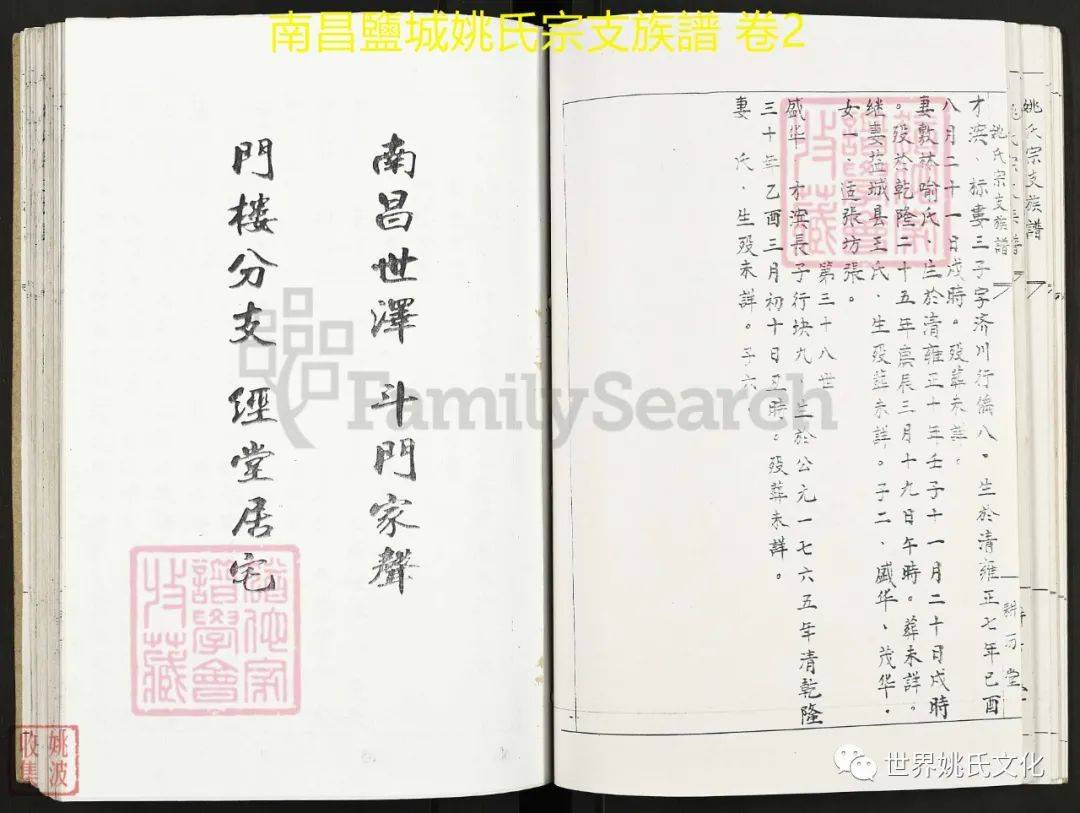 南昌鹽城姚氏宗支族譜 卷2
姚氏宗支族譜
姚氏宗支族譜
才滨、标妻三子字济川行儒八。生於清雍正七年己酉
八月二十一日戌時。殁葬未詳。
妻敷林喻氏、生於清雍正十年壬子十一月二十日戌時
。殁於乾隆二十五年庚辰三月十九日午時。葬未詳。
继妻盐城县王氏、生殁葬未詳。子二、盛华、茂华。
女一、适張坊張。
第三十八世
盛华 才滨長子行块九、生於公元一七六五年清乾隆
三十年乙酉三月初十日丑時。殁葬未詳。
妻 氏、生殁未詳。子六、
南昌世澤 斗門家聲
門樓分支 經堂居宅
譜學會
收藏
譜學會
收藏
姚波
收集
FamilySearch
世界姚氏文化